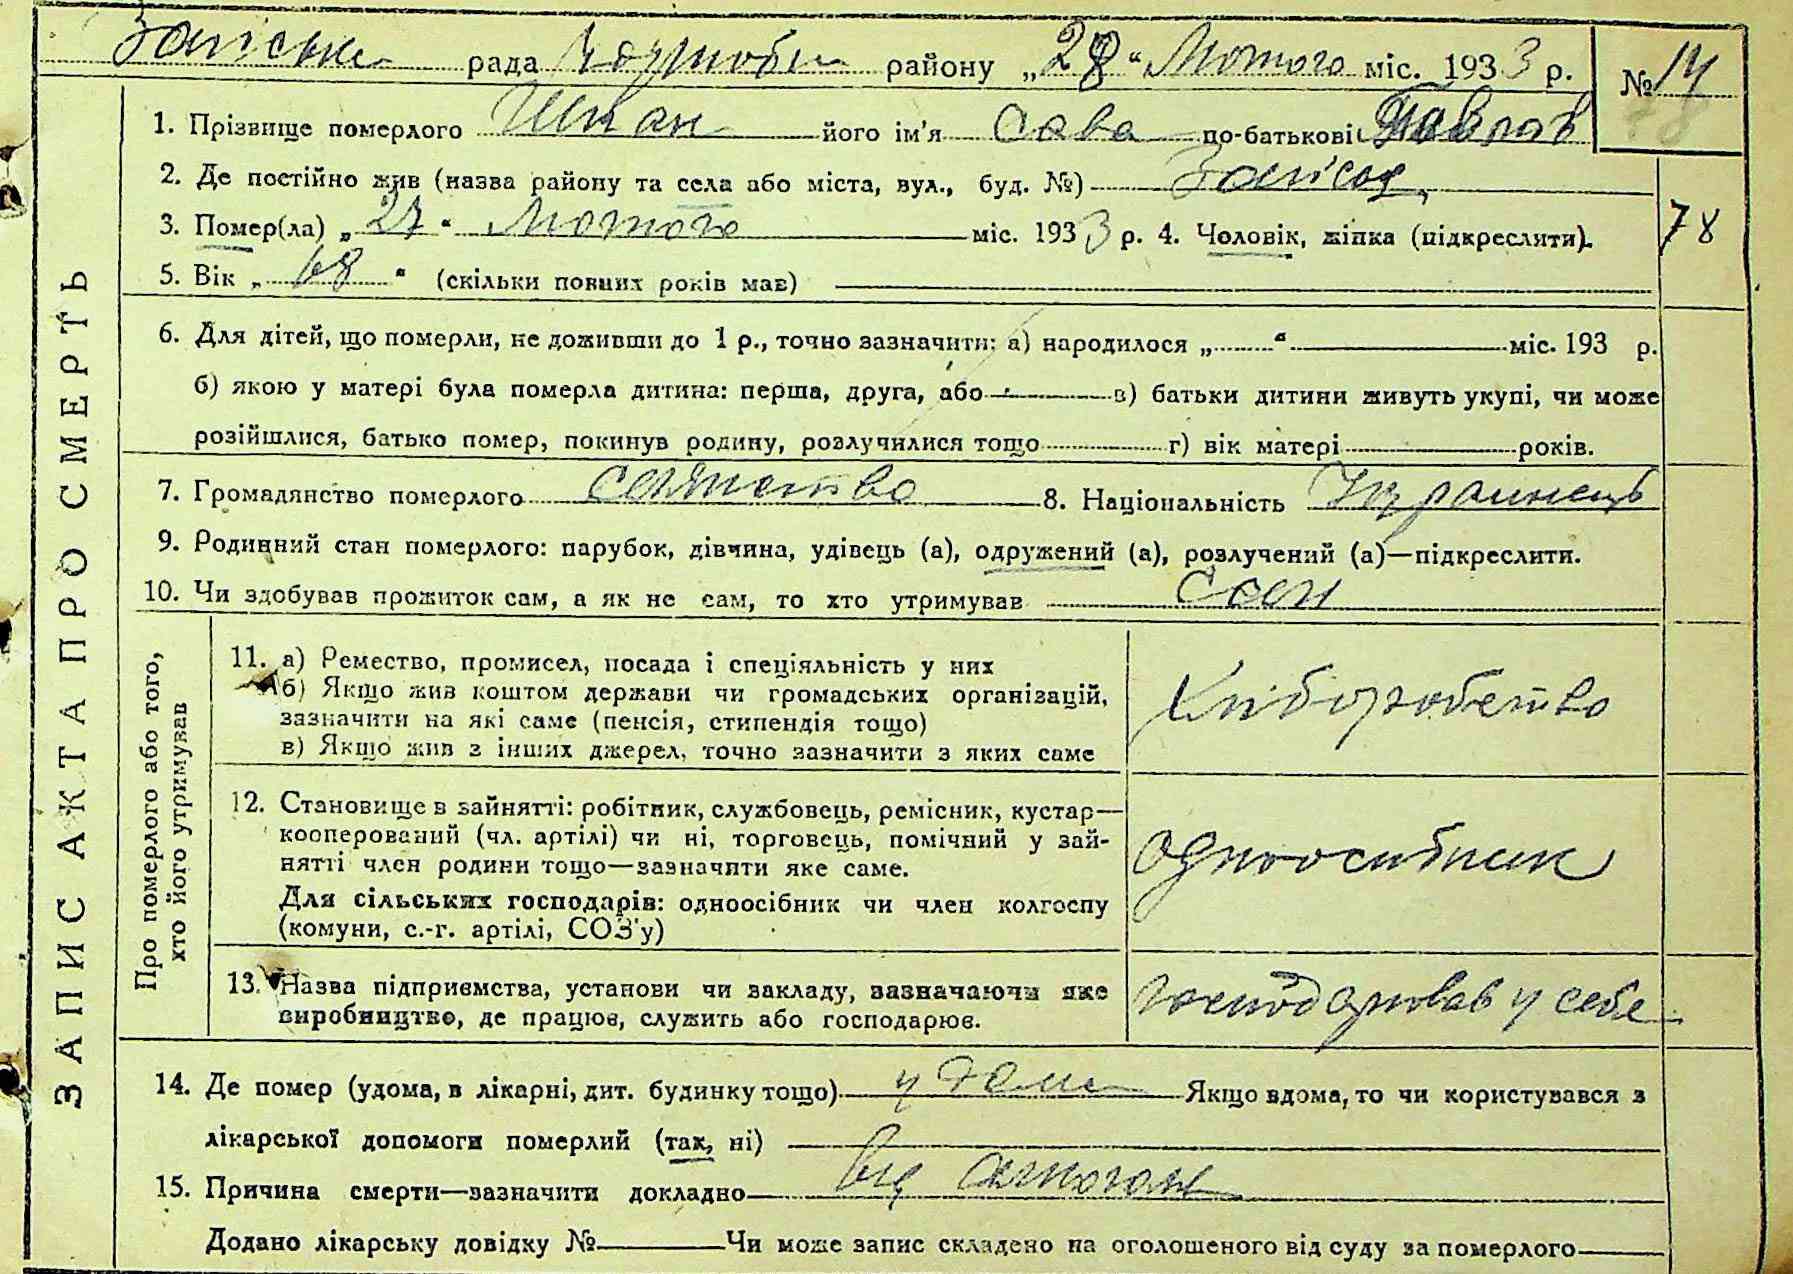 рада району „28“ Лютого міс. 1933 р. № 14
1. Прізвище померлого його ім'я Сава по-батькові
2. Де постійно жив (назва району та села або міста, вул., буд. №)
3. Помер(ла) „27“ Лютого міс. 1933 р. 4. Чоловік, жінка (підкреслити).
78
5. Вік „68“ (скільки повних років має)
6. Для дітей, що померли, не доживши до 1 р., точно зазначити: а) народилося „ “ міс. 193 р.
б) якою у матері була померла дитина: перша, друга, або в) батьки дитини живуть укупі, чи може
розійшлися, батько помер, покинув родину, розлучилися тощо г) вік матері років.
7. Громадянство померлого 8. Національність Українець
9. Родинний стан померлого: парубок, дівчина, удівець (а), одружений (а), розлучений (а)—підкреслити.
10. Чи здобував прожиток сам, а як не сам, то хто утримував Сам
ЗАПИС АКТА ПРО СМЕРТЬ
Про померлого або того,
хто його утримував
11. а) Ремество, промисел, посада і спеціяльність у них
б) Якщо жив коштом держави чи громадських організацій,
зазначити на які саме (пенсія, стипендія тощо)
в) Якщо жив з інших джерел, точно зазначити з яких саме
Хліборобство
12. Становище в зайнятті: робітник, службовець, ремісник, кустар—
кооперований (чл. артілі) чи ні, торговець, помічний у зай-
нятті член родини тощо—зазначити яке саме.
Для сільських господарів: одноосібник чи член колгоспу
(комуни, с.-г. артілі, СОЗ'у)
одноосибник
13. Назва підприємства, установи чи закладу, зазначаючи яке
виробництво, де працює, служить або господарює.
господарював у себе
14. Де помер (удома, в лікарні, дит. будинку тощо) у доми Якщо вдома, то чи користувався з
лікарської допомоги померлий (так, ні)
15. Причина смерти—зазначити докладно від
Додано лікарську довідку № Чи може запис складено на оголошеного від суду за померлого